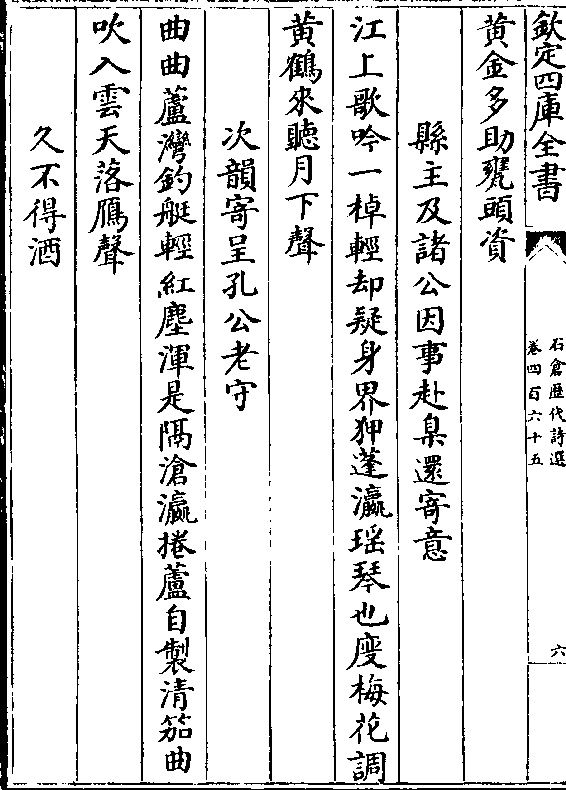 欽定四庫全書
石倉歷代詩選
卷四百六十五
六
黃金多助甕頭資
縣主及諸公因事赴臬還寄意
江上歌吟一棹輕却疑身界狎蓬瀛瑶琴也廋梅花調
黃鶴來聽月下聲
次韻寄呈孔公老守
曲曲蘆灣釣艇輕紅塵渾是隔滄瀛捲蘆自製清笳曲
吹入雲天落鴈聲
久不得酒